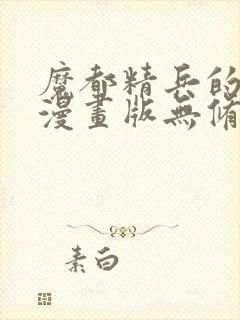 魔都精兵的
漫畫版無脩
素白